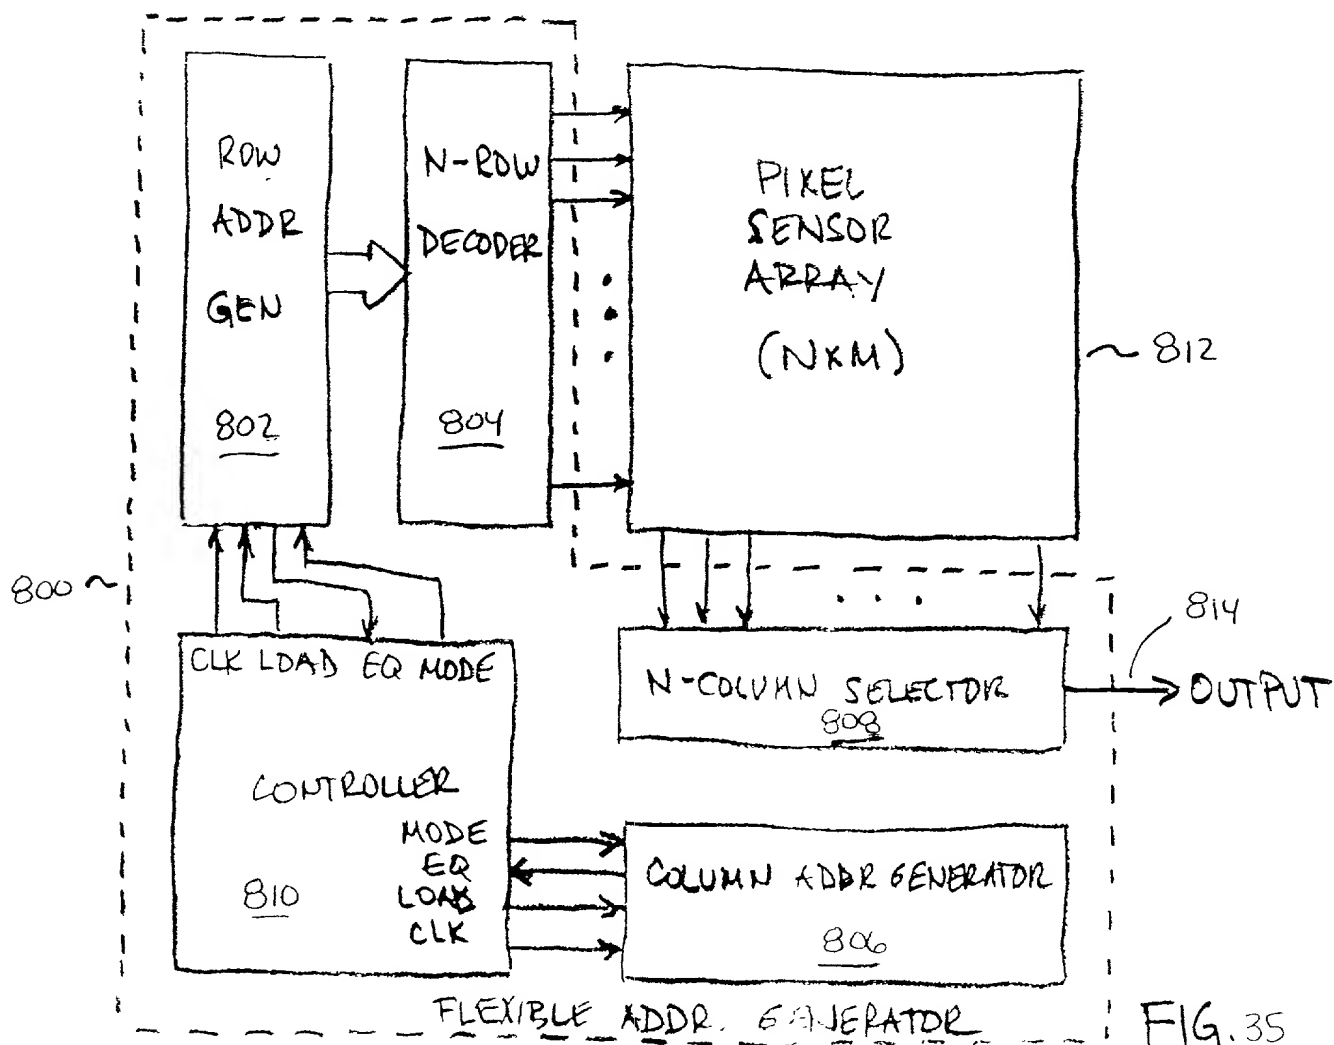 ROW
ADDR
GEN
802
N-ROW
DECODER
804
PIXEL
SENSOR
ARRAY
(NXM)
812
800
CLK LOAD EQ MODE
CONTROLLER
810
MODE
EQ
LOAD
CLK
N-COLUMN SELECTOR
808
814
OUTPUT
COLUMN ADDR GENERATOR
806
FLEXIBLE ADDR. GENERATOR
FIG. 35